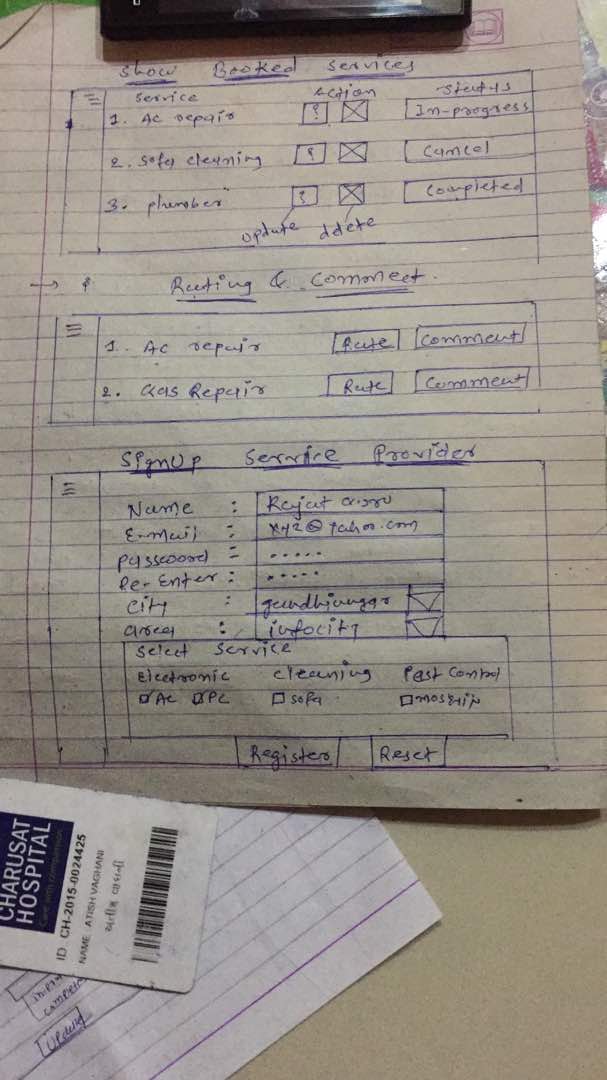 Show Booked Services
Service Action Status
1. Ac repair ? In-progress
2. sofa cleaning ? Cancel
3. plumber ? Completed
update delete
→ Rating & Comment.
1. Ac repair Rate Comment
2. Gas Repair Rate Comment
SignUp Service Provider
Name : Rajat
E-mail : xyz@yahoo.com
Password = .....
Re-Enter : .....
City : gandhinagar
area : infocity
Select Service
Electronic Cleaning Pest Control
Ac PC sofa
Register Reset
CHARUSAT
HOSPITAL
Care with compassion
ID CH-2015-0024425
NAME ATISH VAGHANI
Update